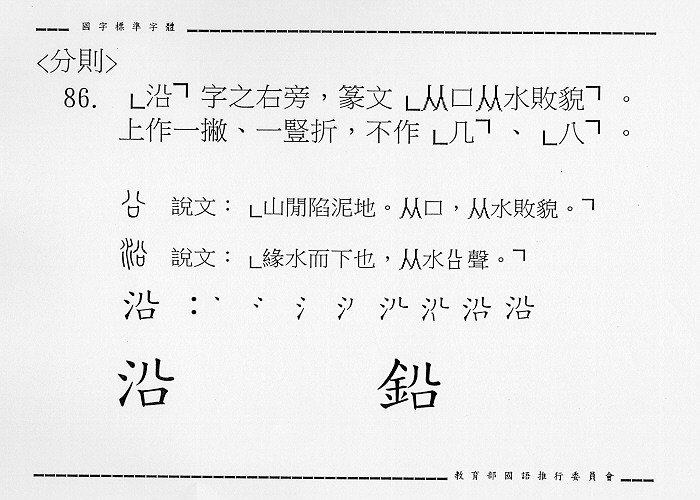 國字標準字體
<分則>
86. ﹂沿﹁字之右旁，篆文﹂从口从水敗貌﹁。
上作一撇、一豎折，不作﹂几﹁、﹂八﹁。
㕣 說文：﹂山閒陷泥地。从口，从水敗貌。﹁
沿 說文：﹂緣水而下也，从水㕣聲。﹁
沿：
沿 鉛
教育部國語推行委員會